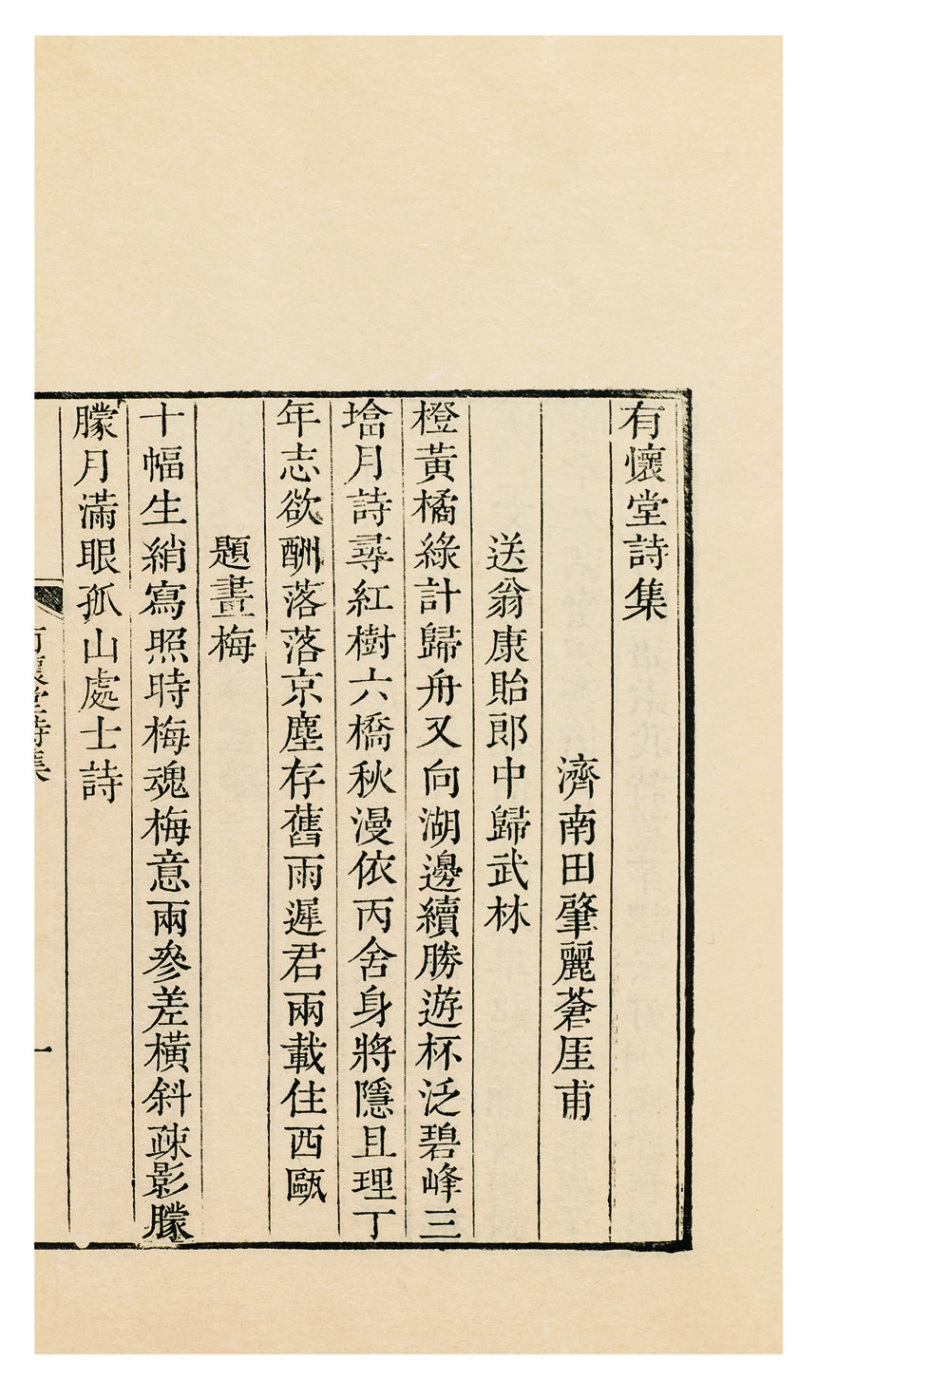 有懷堂詩集
濟南田肇麗蒼厓甫
送翁康貽郎中歸武林
橙黃橘綠計歸舟又向湖邊續勝遊杯泛碧峰三
墖月詩尋紅樹六橋秋漫依丙舍身將隱且理丁
年志欲酬落落京塵存舊雨遲君兩載住西甌
題畫梅
十幅生綃寫照時梅魂梅意兩參差橫斜疎影朦
朦月滿眼孤山處士詩
有懷堂詩集
一